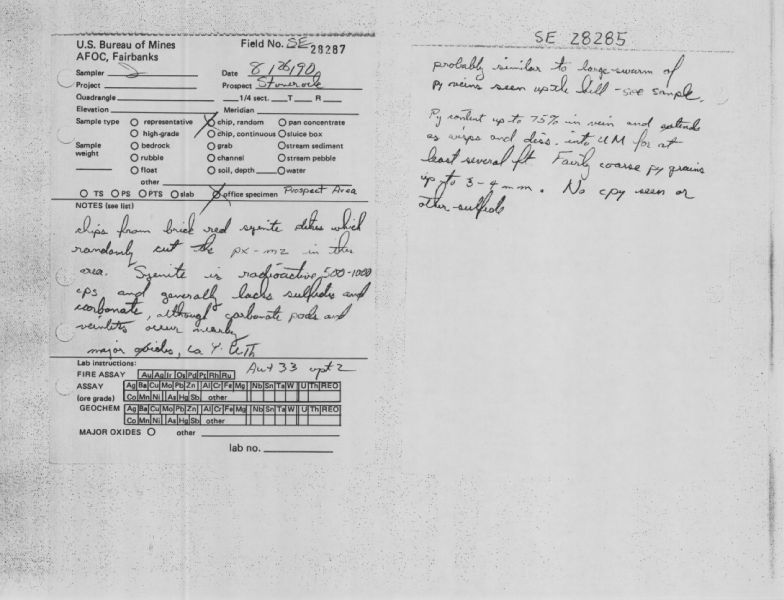 U.S. Bureau of Mines
AFOC, Fairbanks
Field No. SE 28287
Sampler
Date 8/26/90
Project
Prospect Stonerock
Quadrangle 1/4 sect. T R
Elevation Meridian
Sample type representative chip, random pan concentrate
high-grade chip, continuous sluice box
Sample weight bedrock grab stream sediment
rubble channel stream pebble
float soil, depth water
other
TS PS PTS slab office specimen Prospect Area
NOTES (see list)
chips from brick red syenite dikes which
randomly cut the px-mz in this
area. Syenite is radioactive, 500-1000
cps and generally lacks sulfides and
carbonate, although carbonate pods and
veinlets occur nearby
major oxides, La Y Th
Lab instructions: Au + 33 opt 2
FIRE ASSAY Au Ag Ir Os Pd Pt Rh Ru
ASSAY Ag Ba Cu Mo Pb Zn Al Cr Fe Mg Nb Sn Ta W U Th REO
(ore grade) Co Mn Ni As Hg Sb other
GEOCHEM Ag Ba Cu Mo Pb Zn Al Cr Fe Mg Nb Sn Ta W U Th REO
Co Mn Ni As Hg Sb other
MAJOR OXIDES other
lab no.
SE 28285
probably similar to large swarm of
py veins seen up the hill - see sample.
Py content up to 75% in vein and extends
as wisps and diss. into UM for at
least several ft Fairly coarse py grains
up to 3-4 mm. No cpy seen or
other sulfide